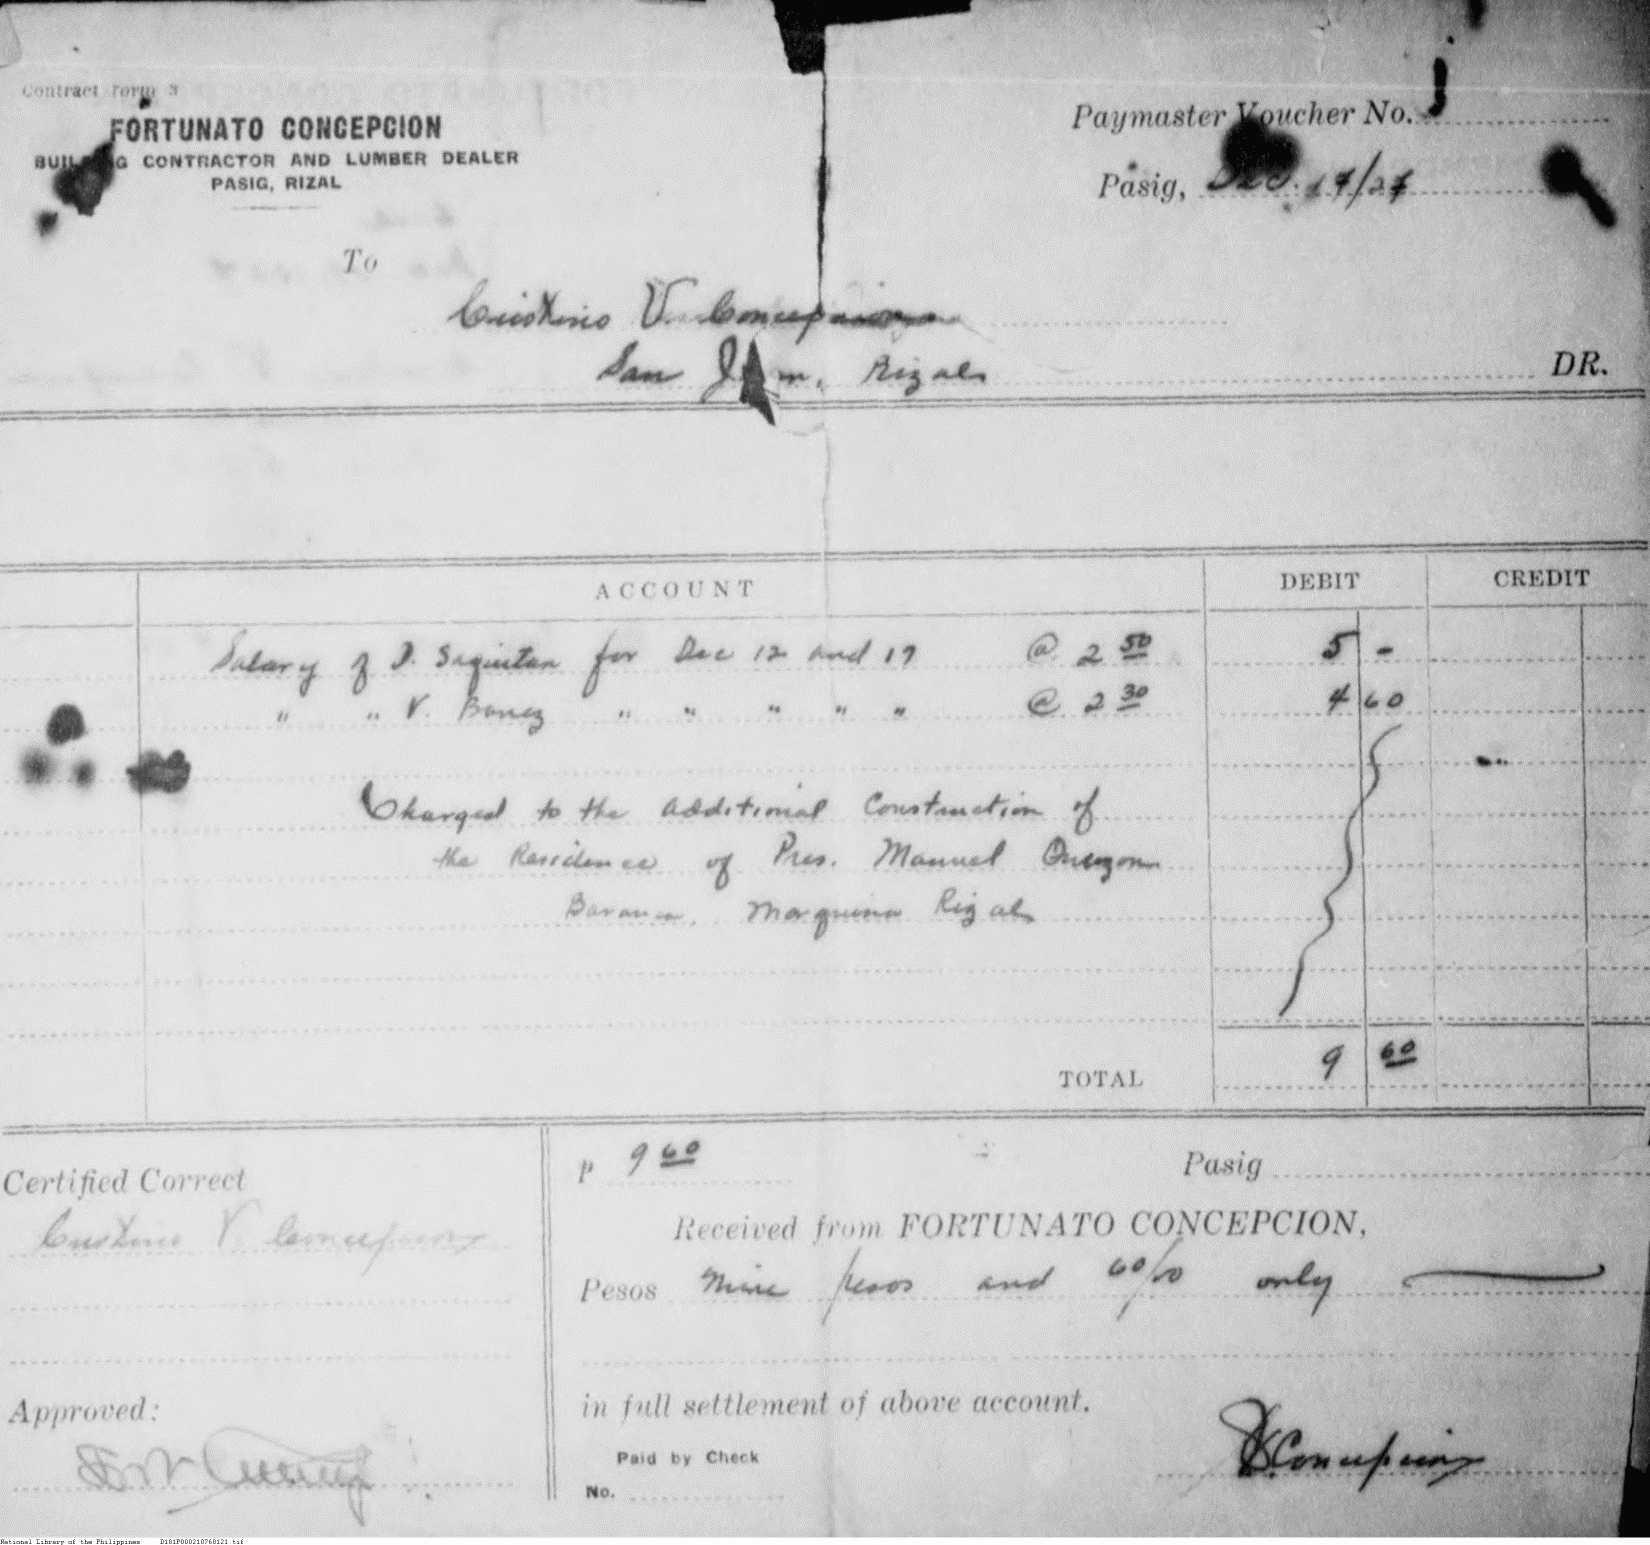 Contract Form 3
FORTUNATO CONCEPCION
BUILDING CONTRACTOR AND LUMBER DEALER
PASIG, RIZAL
Paymaster Voucher No.
Pasig, Dec. 17/27
To
V. Concepcion
San Juan, Rizal
DR.
ACCOUNT DEBIT CREDIT
Salary of D. for Dec 12 and 17 @ 2 50 5 -
" " V. " " " " " @ 2 30 4 60
Charged to the additional Construction of
the Residence of Pres. Manuel Quezon
Mariquina Rizal
TOTAL 9 60
Certified Correct
V. Concepcion
P 9 60
Pasig
Received from FORTUNATO CONCEPCION,
Pesos Nine pesos and 60/00 only
in full settlement of above account.
Approved:
Paid by Check
No.
Concepcion
National Library of the Philippines D181P000210768121.tif